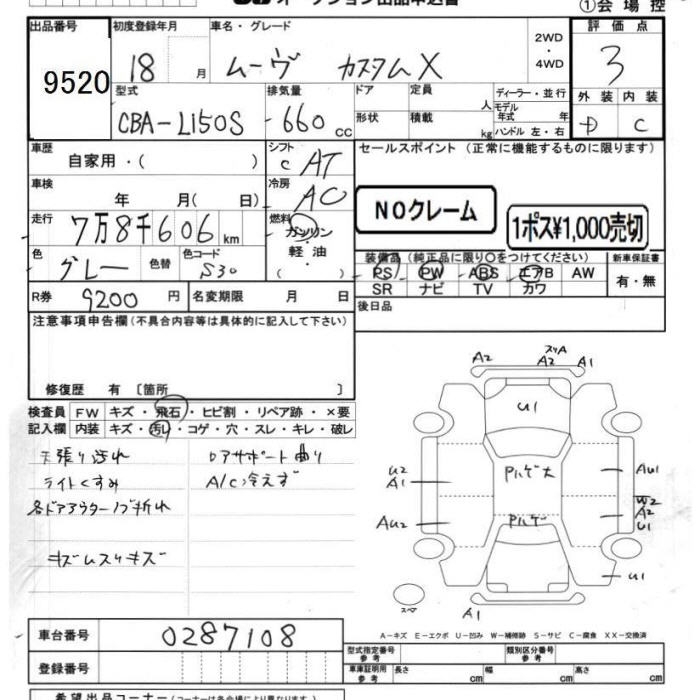 オークション出品申込書
①会場控
出品番号
初度登録年月
車名・グレード
2WD
・
4WD
評価点
9520
18 月
ムーヴ カスタムX
3
型式
排気量
ドア
定員
人
ディーラー・並行
モデル
年式 年
外装
内装
CBA-L150S
660 cc
形状
積載
kg
ハンドル 左・右
D
C
車歴
自家用・( )
シフト
C AT
セールスポイント (正常に機能するものに限ります)
車検
年 月( 日)
冷房
AC
NOクレーム
1ポス¥1,000売切
走行
7万8千606 km
燃料
ガソリン
・
軽油
色
グレー
色替
色コード
S30
装備品 (純正品に限り○をつけてください)
新車保証書
PS PW ABS エアB AW
SR ナビ TV カワ
有・無
R券
9200 円
名変期限 月 日
後日品
注意事項申告欄 (不具合内容等は具体的に記入して下さい)
修復歴 有 〔箇所 〕
検査員
記入欄
FW キズ・飛石・ヒビ割・リペア跡・×要
内装 キズ・汚レ・コゲ・穴・スレ・キレ・破レ
天張り汚れ
ロアサポート曲り
ライトくすみ
A/C冷えず
各ドアアウターノブ折れ
キズムスリキズ
A2
スリA
A2
A1
U1
U2
A1
Pルゲ大
AU1
AU2
Pルゲ
W2
A2
U1
U1
スペア
A1
A-キズ E-エクボ U-凹み W-補修跡 S-サビ C-腐食 XX-交換済
車台番号
0287108
登録番号
型式指定番号
参考
類別区分番号
参考
車庫証明用
参考
長さ cm
幅 cm
高さ cm
希望出品コーナー (コーナーは各会場により異なります)